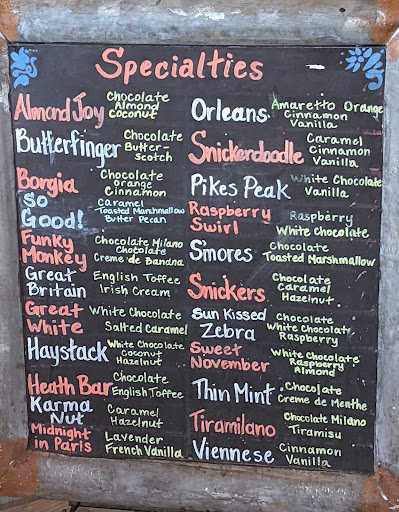 Specialties
Almond Joy Chocolate Almond Coconut
Butterfinger Chocolate Butter-scotch
Borgia Chocolate Orange Cinnamon
So Good! Caramel Toasted Marshmallow Butter Pecan
Funky Monkey Chocolate Milano Chocolate Creme de Banana
Great Britain English Toffee Irish Cream
Great White White Chocolate Salted Caramel
Haystack White Chocolate Coconut Hazelnut
Heath Bar Chocolate English Toffee
Karma Nut Caramel Hazelnut
Midnight in Paris Lavender French Vanilla
Orleans Amaretto Orange Cinnamon Vanilla
Snickerdoodle Caramel Cinnamon Vanilla
Pikes Peak White Chocolate Vanilla
Raspberry Swirl Raspberry White Chocolate
S'mores Chocolate Toasted Marshmallow
Snickers Chocolate Caramel Hazelnut
Sun Kissed Zebra Chocolate White Chocolate Raspberry
Sweet November White Chocolate Raspberry Almond
Thin Mint Chocolate Creme de Menthe
Tiramilano Chocolate Milano Tiramisu
Viennese Cinnamon Vanilla